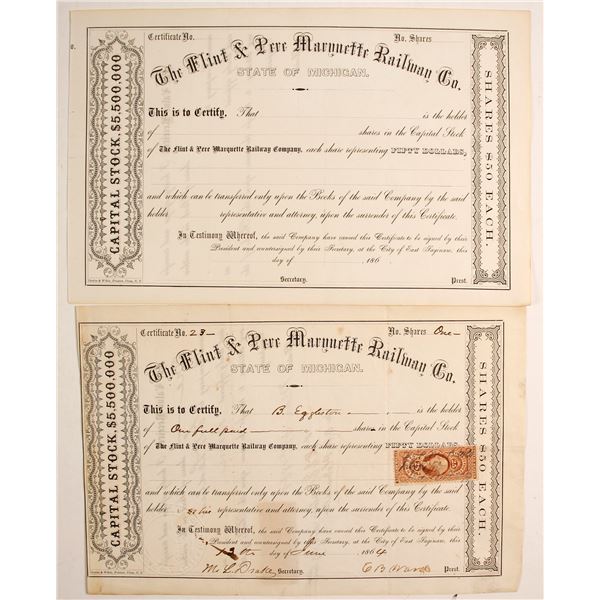 Certificate No. No. Shares
The Flint & Pere Marquette Railway Co.
STATE OF MICHIGAN.
This is to Certify, That is the holder
of shares in the Capital Stock
of The Flint & Pere Marquette Railway Company, each share representing FIFTY DOLLARS,
and which can be transferred only upon the Books of the said Company by the said
holder representative and attorney, upon the surrender of this Certificate.
In Testimony Whereof, the said Company have caused this Certificate to be signed by their
President and countersigned by their Secretary, at the City of East Saginaw, this
day of 186
Secretary. Prest.
CAPITAL STOCK, $5,500,000
SHARES $50 EACH.
Certificate No. 23 No. Shares One
The Flint & Pere Marquette Railway Co.
STATE OF MICHIGAN.
This is to Certify, That B. Eggleston is the holder
of One full paid shares in the Capital Stock
of The Flint & Pere Marquette Railway Company, each share representing FIFTY DOLLARS,
and which can be transferred only upon the Books of the said Company by the said
holder or his representative and attorney, upon the surrender of this Certificate.
In Testimony Whereof, the said Company have caused this Certificate to be signed by their
President and countersigned by their Secretary, at the City of East Saginaw, this
day of June 1864
M. L. Drake Secretary. E B Ward Prest.
CAPITAL STOCK, $5,500,000
SHARES $50 EACH.